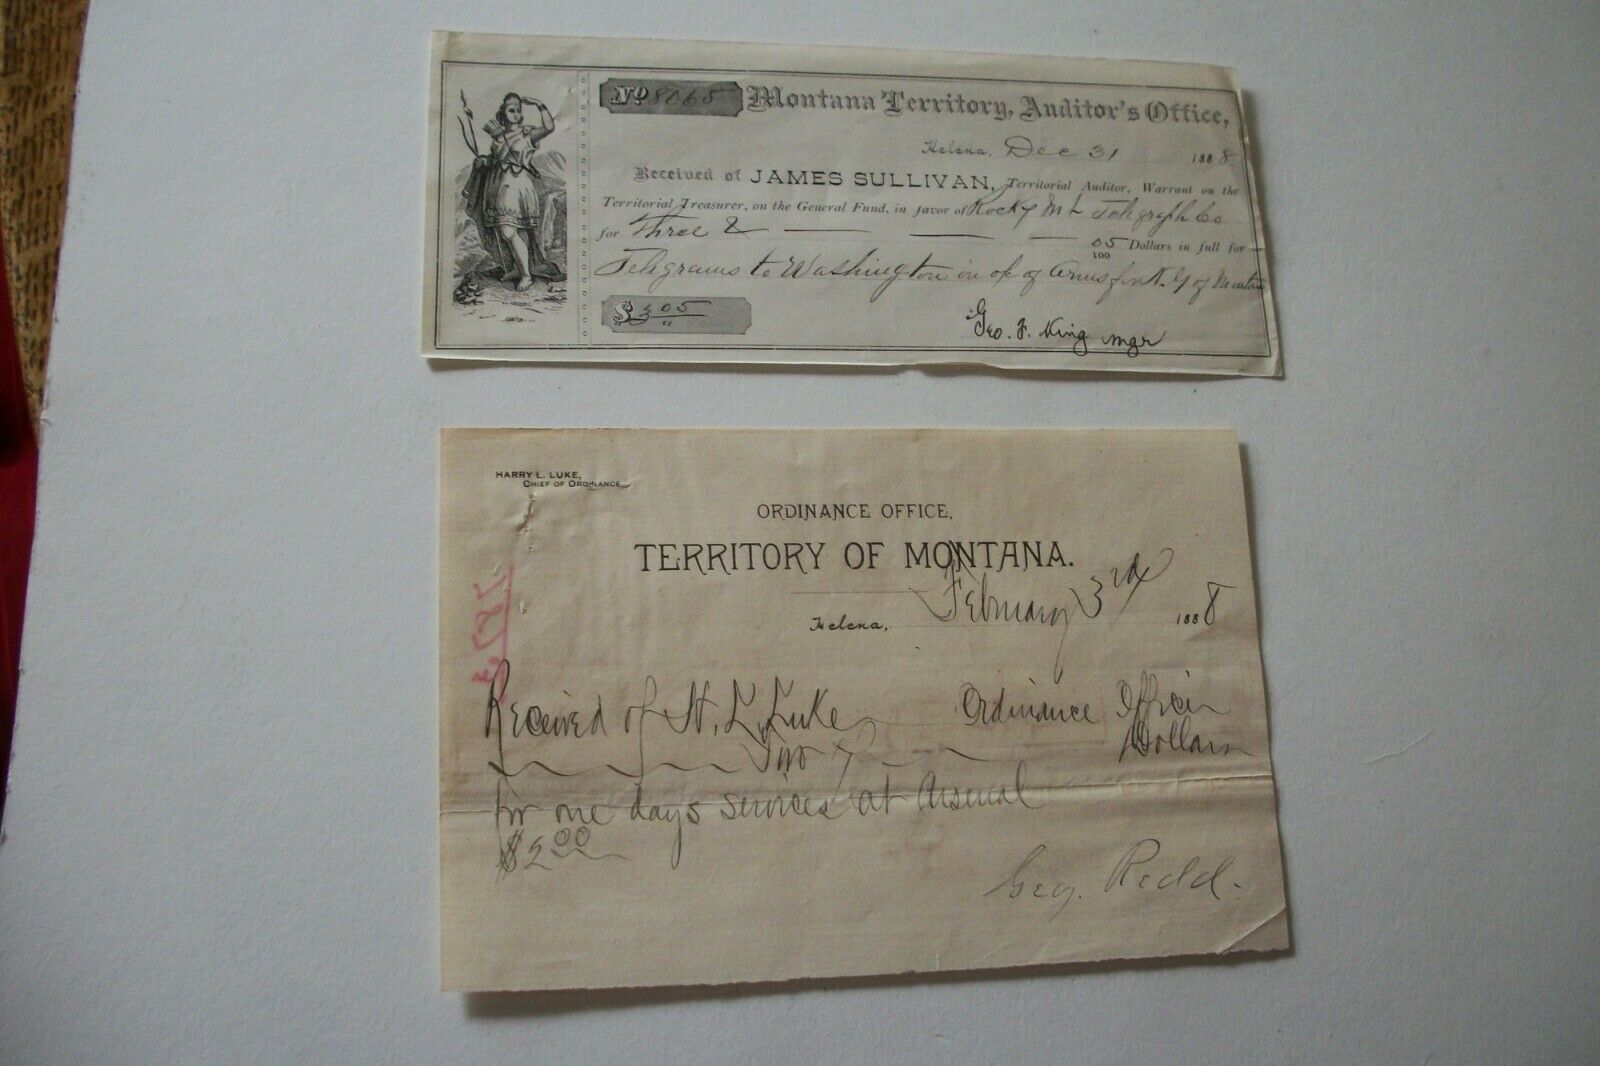 No 8065 Montana Territory, Auditor's Office,
Helena, Dec 31 1888
Received of JAMES SULLIVAN, Territorial Auditor, Warrant on the
Territorial Treasurer, on the General Fund, in favor of Rocky Mt Telegraph Co
for Three & 05/100 Dollars in full for
Telegrams to Washington in of Arms for N. G of
$3 05
Geo. F. King mgr
HARRY L. LUKE,
CHIEF OF ORDINANCE.
ORDINANCE OFFICE,
TERRITORY OF MONTANA.
Helena, February 3rd 1888
Received of H. L. Luke Ordinance Officer
Two Dollars
for one days services at Arsenal
$2.00
Geo. Redd.